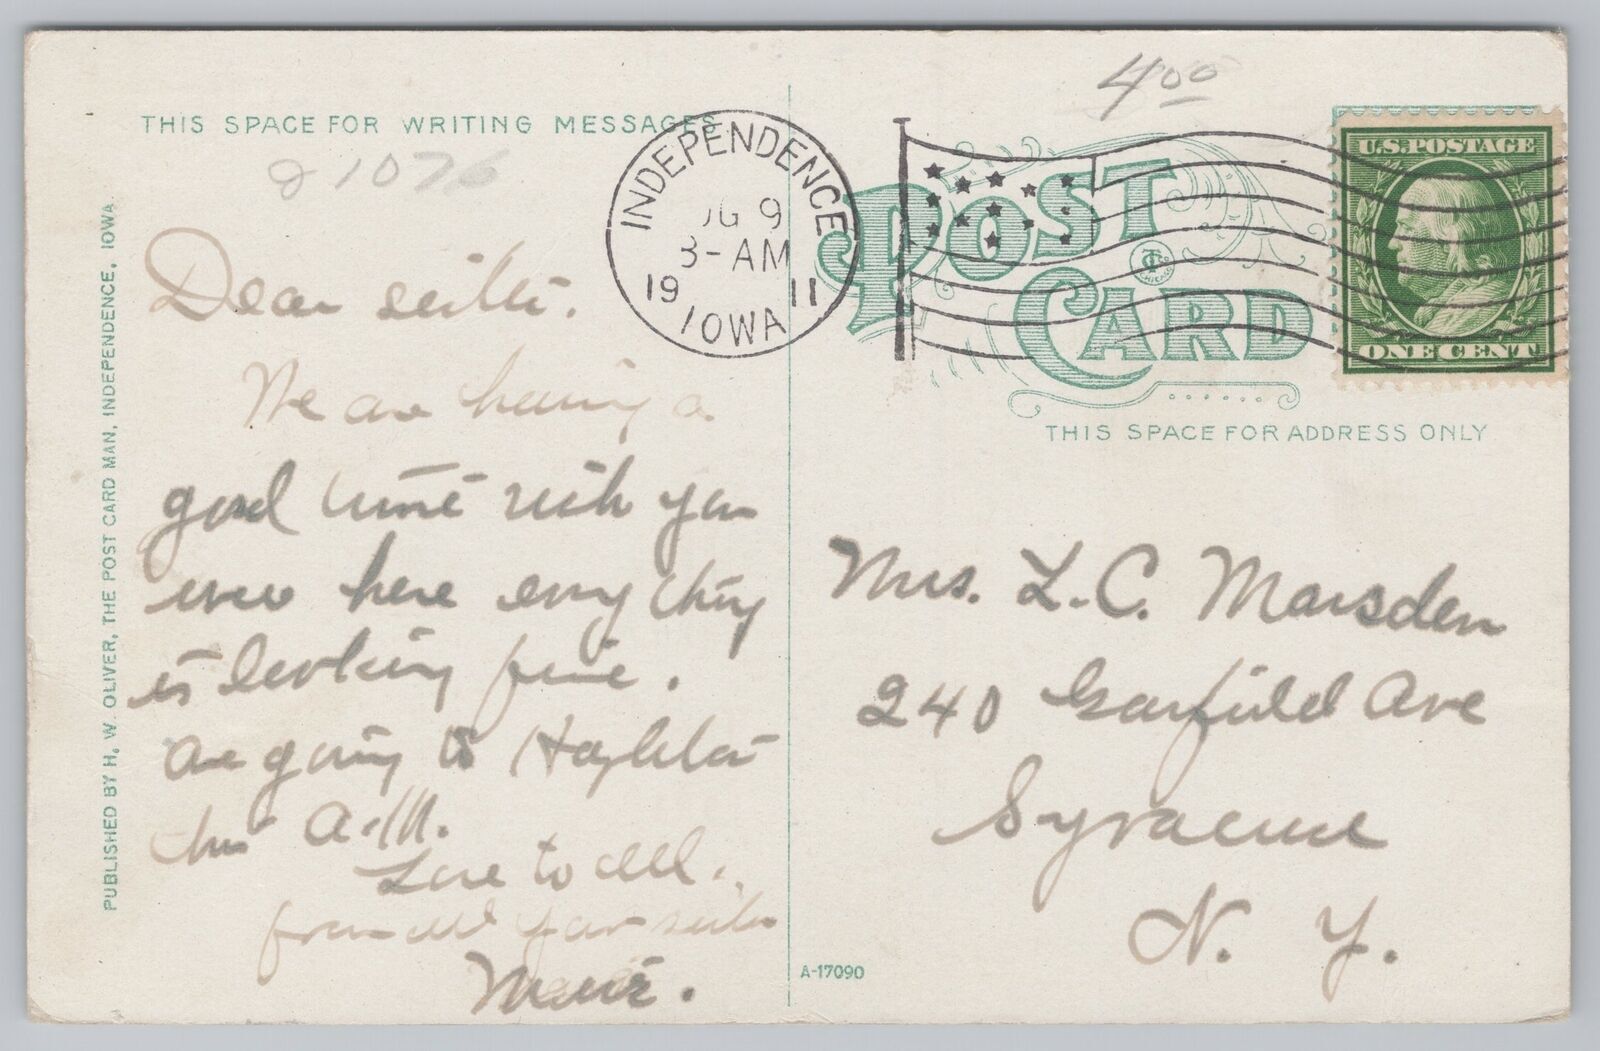 4 00
THIS SPACE FOR WRITING MESSAGES
21076
INDEPENDENCE
UG 9
3-AM
19 11
IOWA
POST
CARD
U.S. POSTAGE
ONE CENT
THIS SPACE FOR ADDRESS ONLY
PUBLISHED BY H. W. OLIVER, THE POST CARD MAN, INDEPENDENCE, IOWA.
Dear sister.
We are having a
good time wish you
were here every thing
is looking fine.
are going to Hazleton
this A.M.
Love to all.
from all your sister
Mrs. L. C. Marsden
240 Garfield Ave
Syracuse
N. Y.
A-17090